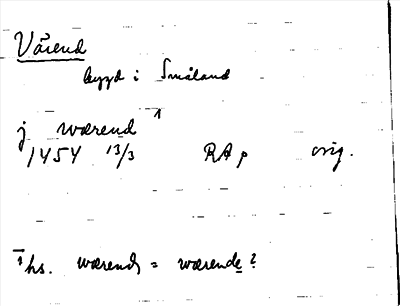 Värend
bygd i Småland
j wærend 1
1454 13/3 RAp orig.
1 hs. wærend = wærende?